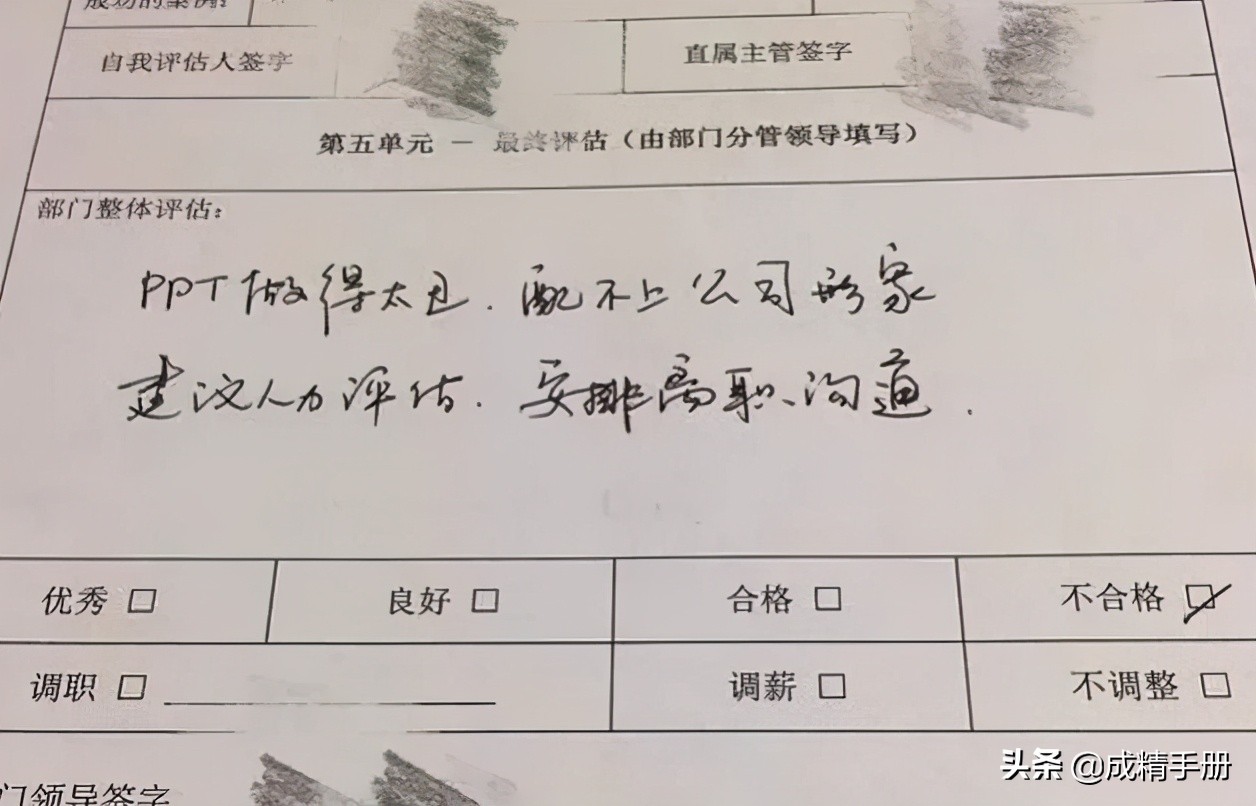 成功的案例：
自我评估人签字 直属主管签字
第五单元 － 最终评估（由部门分管领导填写）
部门整体评估：
PPT做得太丑．配不上公司形象
建议人力评估．安排离职沟通．
优秀 □ 良好 □ 合格 □ 不合格 ☑
调职 □ 调薪 □ 不调整 □
门领导签字
头条 @成精手册